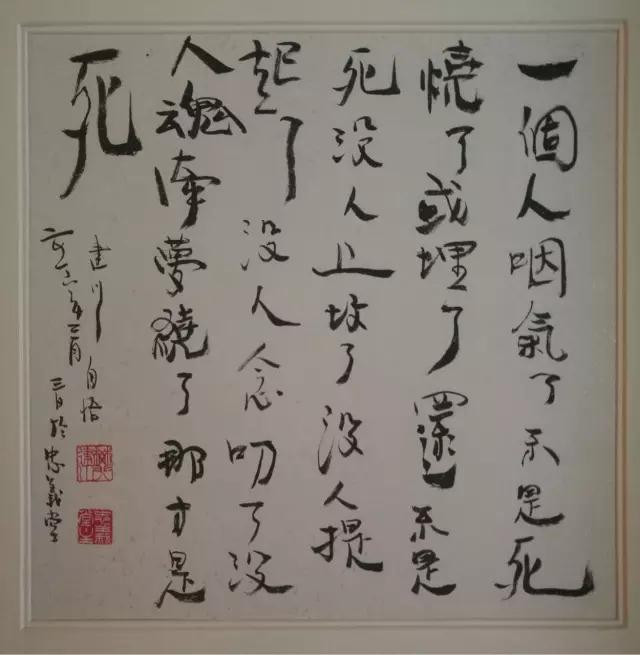 一個人咽氣了不是死
燒了或埋了還不是
死没人上坟了没人提
起了没人念叨了没
人魂牽夢繞了那才是
死
建川自悟
六年二月
三日於忠義堂